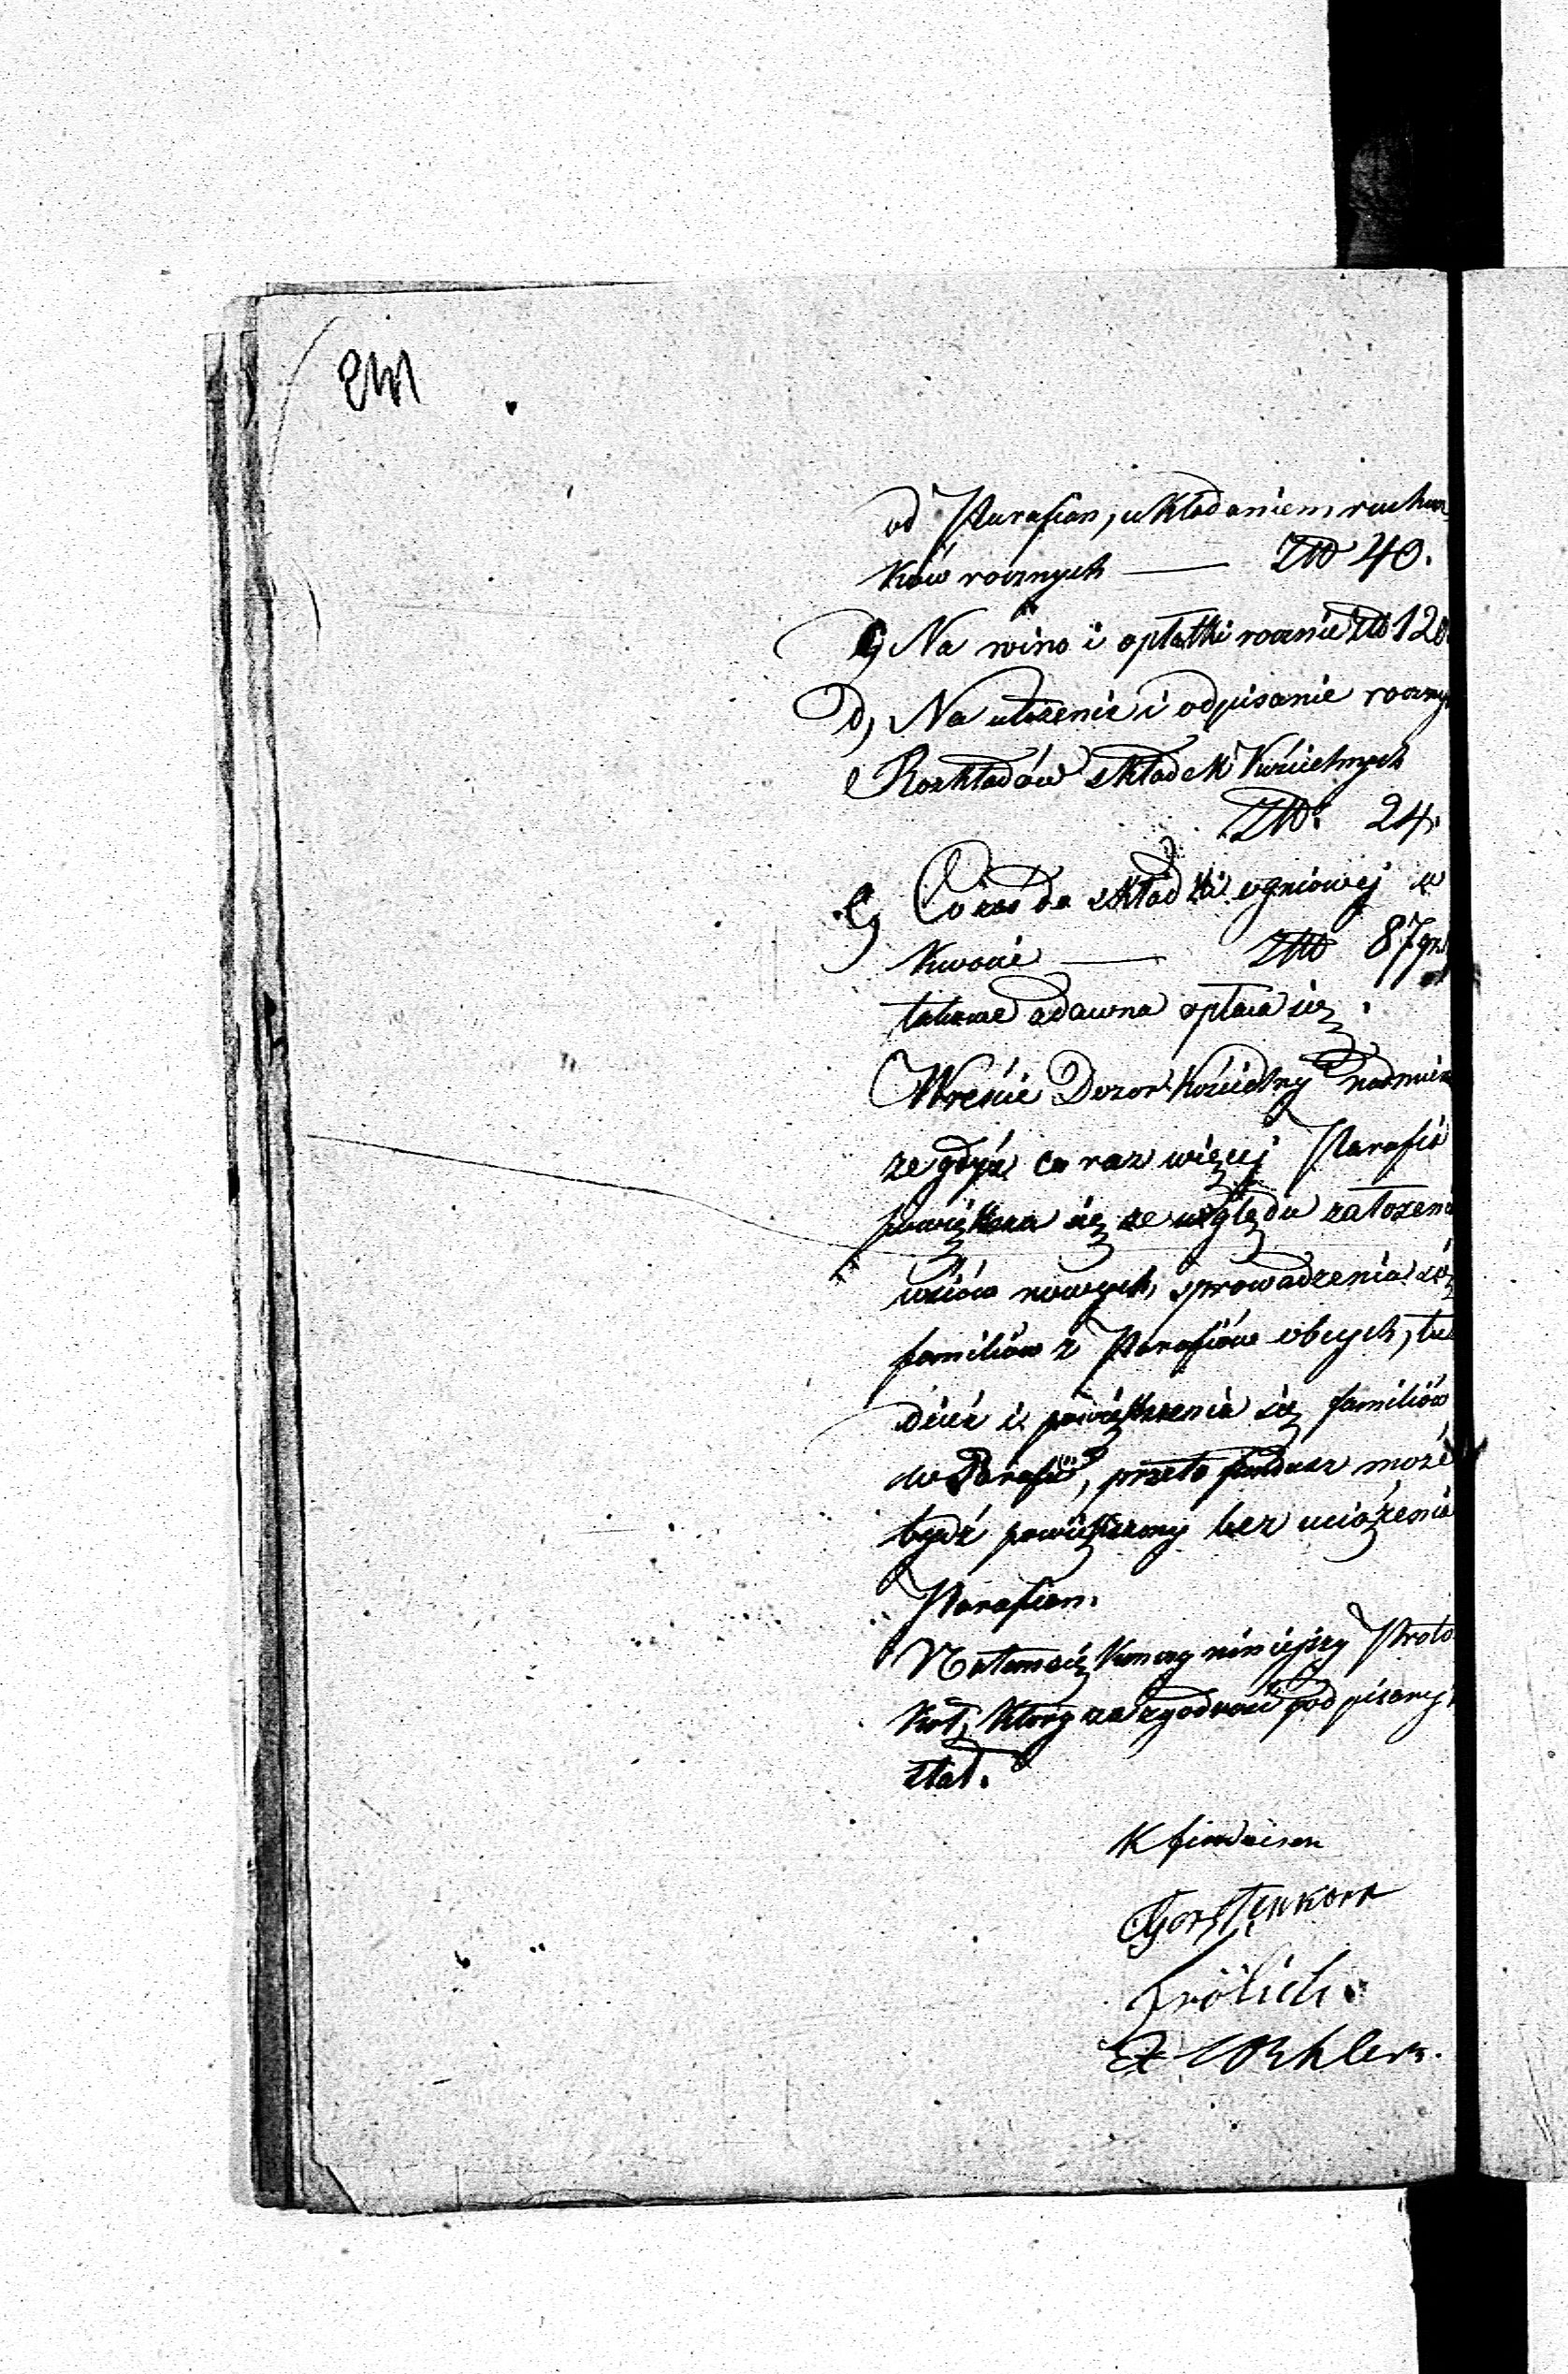 od Parafian, układaniem rachun
ków rocznych — Złł 40.
C, Na wino i opłatki rocznie Złł 120
D, Na ułożenie i odpisanie roczny
Rozkładów składek Kościelnych
Złł. 24.
E, Co zaś do składki ogniowej w
kwocie — Złł 87 gr.
takowe zdawna opłaca się.
Wreście Dozor Kościelny nadmie
ze gdyż co raz więcej Parafia
powiększa się ze względu założenia
wsiów nowych, sprowadzenia się
familiów z Parafiów obcych, tu
dzież i powiększenia się familiów
w Parafii, przeto fundusz może
bydź powiększony bez uciążenia
Parafian.
Na tem się kończy niniejszy Proto
kół, który za zgodność podpisany
stał.
Gerstenkorn
Frölich.